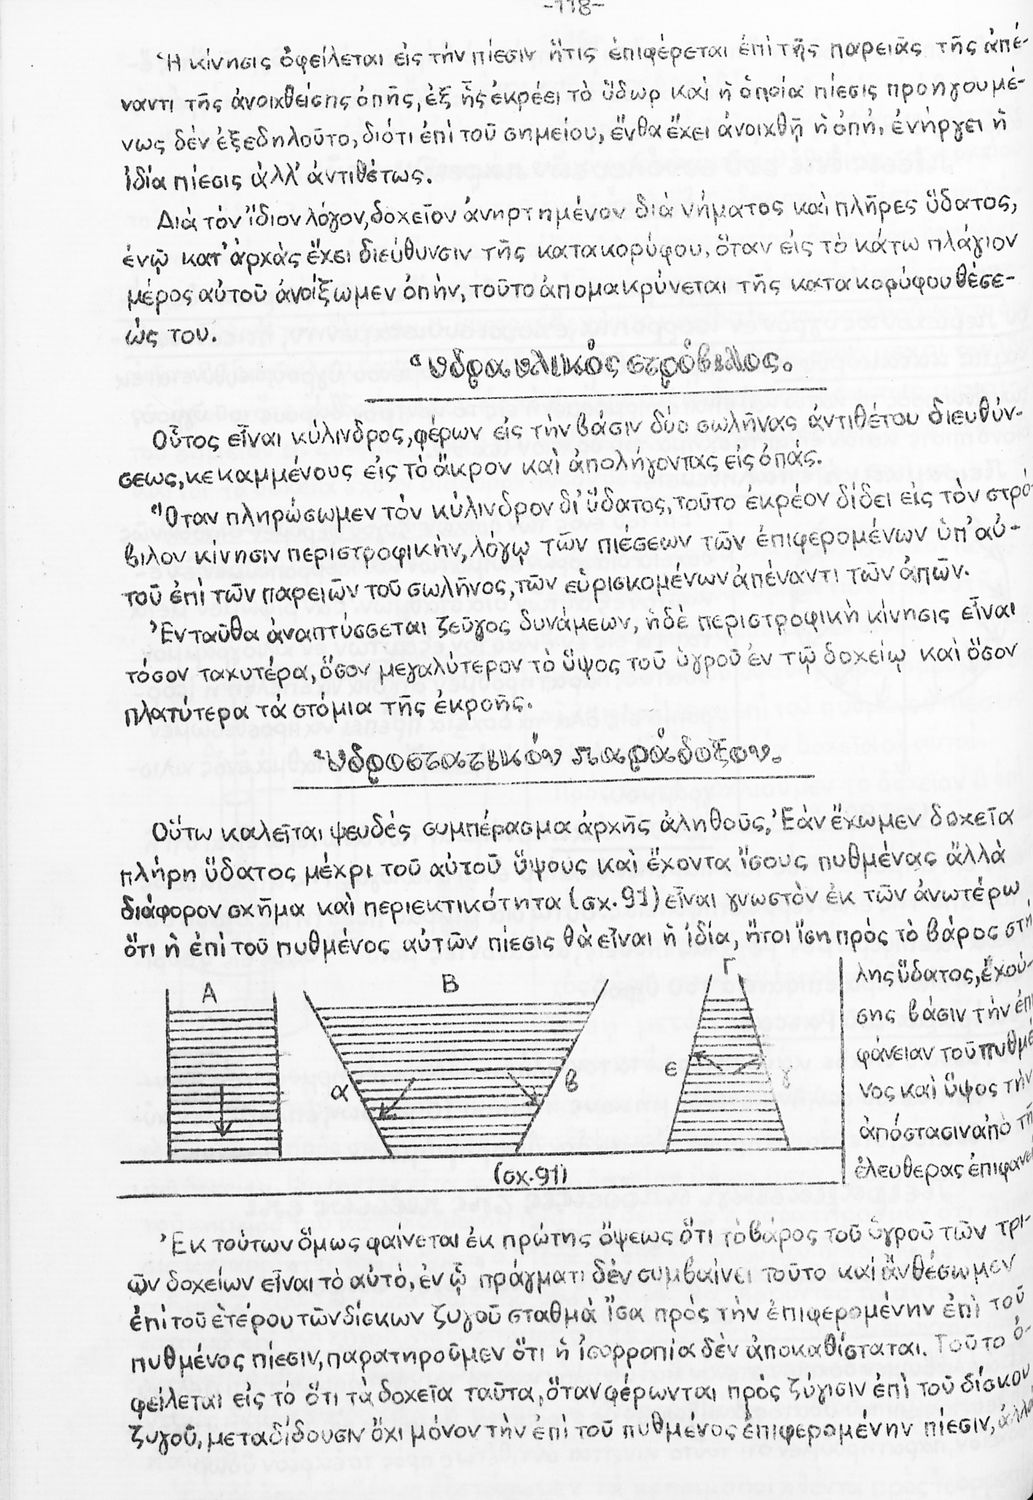 -118-
Ἡ κίνησις ὀφείλεται εἰς τὴν πίεσιν ἥτις ἐπιφέρεται ἐπὶ τῆς παρειᾶς τῆς ἀπέ-
ναντι τῆς ἀνοιχθείσης ὀπῆς, ἐξ ἧς ἐκρέει τὸ ὕδωρ καὶ ἡ ὁποία πίεσις προηγουμέ-
νως δὲν ἐξεδηλοῦτο, διότι ἐπὶ τοῦ σημείου, ἔνθα ἔχει ἀνοιχθῆ ἡ ὀπή, ἐνήργει ἡ
ἰδία πίεσις ἀλλ' ἀντιθέτως.
Διὰ τὸν ἴδιον λόγον, δοχεῖον ἀνηρτημένον διὰ νήματος καὶ πλῆρες ὕδατος,
ἐνῷ κατ' ἀρχὰς ἔχει διεύθυνσιν τῆς κατακορύφου, ὅταν εἰς τὸ κάτω πλάγιον
μέρος αὐτοῦ ἀνοίξωμεν ὀπήν, τοῦτο ἀπομακρύνεται τῆς κατακορύφου θέσε-
ώς του.
Ὑδραυλικὸς στρόβιλος.
Οὗτος εἶναι κύλινδρος, φέρων εἰς τὴν βάσιν δύο σωλῆνας ἀντιθέτου διευθύν-
σεως, κεκαμμένους εἰς τὸ ἄκρον καὶ ἀπολήγοντας εἰς ὀπάς.
Ὅταν πληρώσωμεν τὸν κύλινδρον δι' ὕδατος, τοῦτο ἐκρέον δίδει εἰς τὸν στρό-
βιλον κίνησιν περιστροφικήν, λόγῳ τῶν πιέσεων τῶν ἐπιφερομένων ὑπ' αὐ-
τοῦ ἐπὶ τῶν παρειῶν τοῦ σωλῆνος, τῶν εὑρισκομένων ἀπέναντι τῶν ὀπῶν.
Ἐνταῦθα ἀναπτύσσεται ζεῦγος δυνάμεων, ἡ δὲ περιστροφικὴ κίνησις εἶναι
τόσον ταχυτέρα, ὅσον μεγαλύτερον τὸ ὕψος τοῦ ὑγροῦ ἐν τῷ δοχείῳ καὶ ὅσον
πλατύτερα τὰ στόμια τῆς ἐκροῆς.
Ὑδροστατικὸν παράδοξον.
Οὕτω καλεῖται ψευδὲς συμπέρασμα ἀρχῆς ἀληθοῦς, Ἐὰν ἔχωμεν δοχεῖα
πλήρη ὕδατος μέχρι τοῦ αὐτοῦ ὕψους καὶ ἔχοντα ἴσους πυθμένας ἀλλὰ
διάφορον σχῆμα καὶ περιεκτικότητα (σχ. 91) εἶναι γνωστὸν ἐκ τῶν ἀνωτέρω
ὅτι ἡ ἐπὶ τοῦ πυθμένος αὐτῶν πίεσις θὰ εἶναι ἡ ἰδία, ἤτοι ἴση πρὸς τὸ βάρος στή-
λης ὕδατος, ἐχού-
σης βάσιν τὴν ἐπι
φάνειαν τοῦ πυθμέ
νος καὶ ὕψος τὴν
ἀπόστασιν ἀπὸ τῆ
ἐλευθέρας ἐπιφανεί
Α
Β
Γ
α
β
ε
γ
(σχ. 91)
Ἐκ τούτων ὅμως φαίνεται ἐκ πρώτης ὄψεως ὅτι τὸ βάρος τοῦ ὑγροῦ τῶν τρι-
ῶν δοχείων εἶναι τὸ αὐτό, ἐν ᾧ πράγματι δὲν συμβαίνει τοῦτο καὶ ἂν θέσωμεν
ἐπὶ τοῦ ἑτέρου τῶν δίσκων ζυγοῦ σταθμὰ ἴσα πρὸς τὴν ἐπιφερομένην ἐπὶ τοῦ
πυθμένος πίεσιν, παρατηροῦμεν ὅτι ἡ ἰσορροπία δὲν ἀποκαθίσταται. Τοῦτο ὀ-
φείλεται εἰς τὸ ὅτι τὰ δοχεῖα ταῦτα, ὅταν φέρωνται πρὸς ζύγισιν ἐπὶ τοῦ δίσκου
ζυγοῦ, μεταδίδουσιν ὄχι μόνον τὴν ἐπὶ τοῦ πυθμένος ἐπιφερομένην πίεσιν, ἀλλὰ